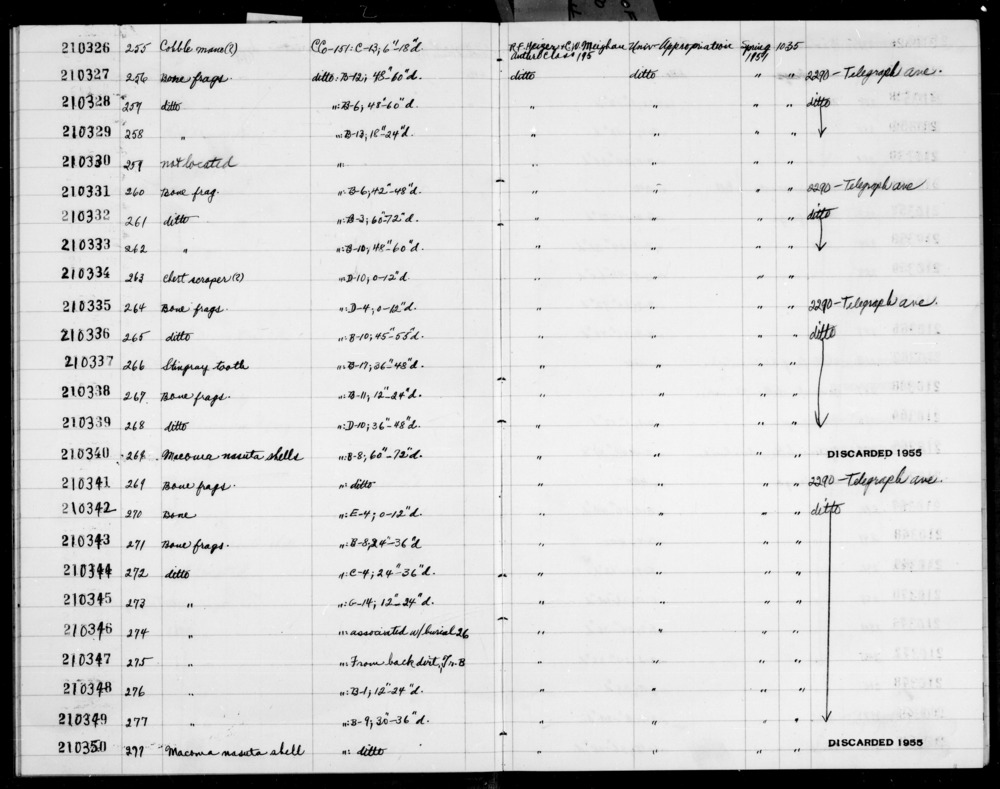 210326 255 Cobble mano(?) CCo-151: C-13; 6"-18"d. R.F. Heizer & C.W. Meighan Univ-Appropriation Spring 1035
Anthro Class 195 1954
210327 256 Bone frags. ditto: B-12; 48"-60"d. ditto ditto " " 2290-Telegraph ave.
210328 257 ditto ": B-6; 48"-60"d. " " " " ditto
210329 258 " ": B-13; 18"-24"d. " " " "
210330 259 not located ": " " " "
210331 260 Bone frag. ": B-6; 42"-48"d. " " " " 2290-Telegraph ave
210332 261 ditto ": B-3; 60"-72"d. " " " " ditto
210333 262 " ": B-10; 48"-60"d. " " " "
210334 263 Chert scraper(?) ": D-10; 0-12"d. " " " "
210335 264 Bone frags. ": D-4; 0-12"d. " " " " 2290-Telegraph ave.
210336 265 ditto ": B-10; 45"-55"d. " " " " ditto
210337 266 Stingray tooth ": B-17; 36"-48"d. " " " "
210338 267 Bone frags. ": B-11; 12"-24"d. " " " "
210339 268 ditto ": D-10; 36"-48"d. " " " "
210340 268 Macoma nasuta shells ": B-8; 60"-72"d. " " " " DISCARDED 1955
210341 269 Bone frags. ": ditto " " " " 2290-Telegraph ave.
210342 270 Bone ": E-4; 0-12"d. " " " " ditto
210343 271 Bone frags. ": B-8; 24"-36"d " " " "
210344 272 ditto ": C-4; 24"-36"d. " " " "
210345 273 " ": G-14; 12"-24"d. " " " "
210346 274 " ": associated w/burial 26 " " " "
210347 275 " ": From back dirt, Tr-B " " " "
210348 276 " ": B-1; 12"-24"d. " " " "
210349 277 " ": B-9; 30"-36"d. " " " "
210350 277 Macoma nasuta shell ": ditto " " " " DISCARDED 1955